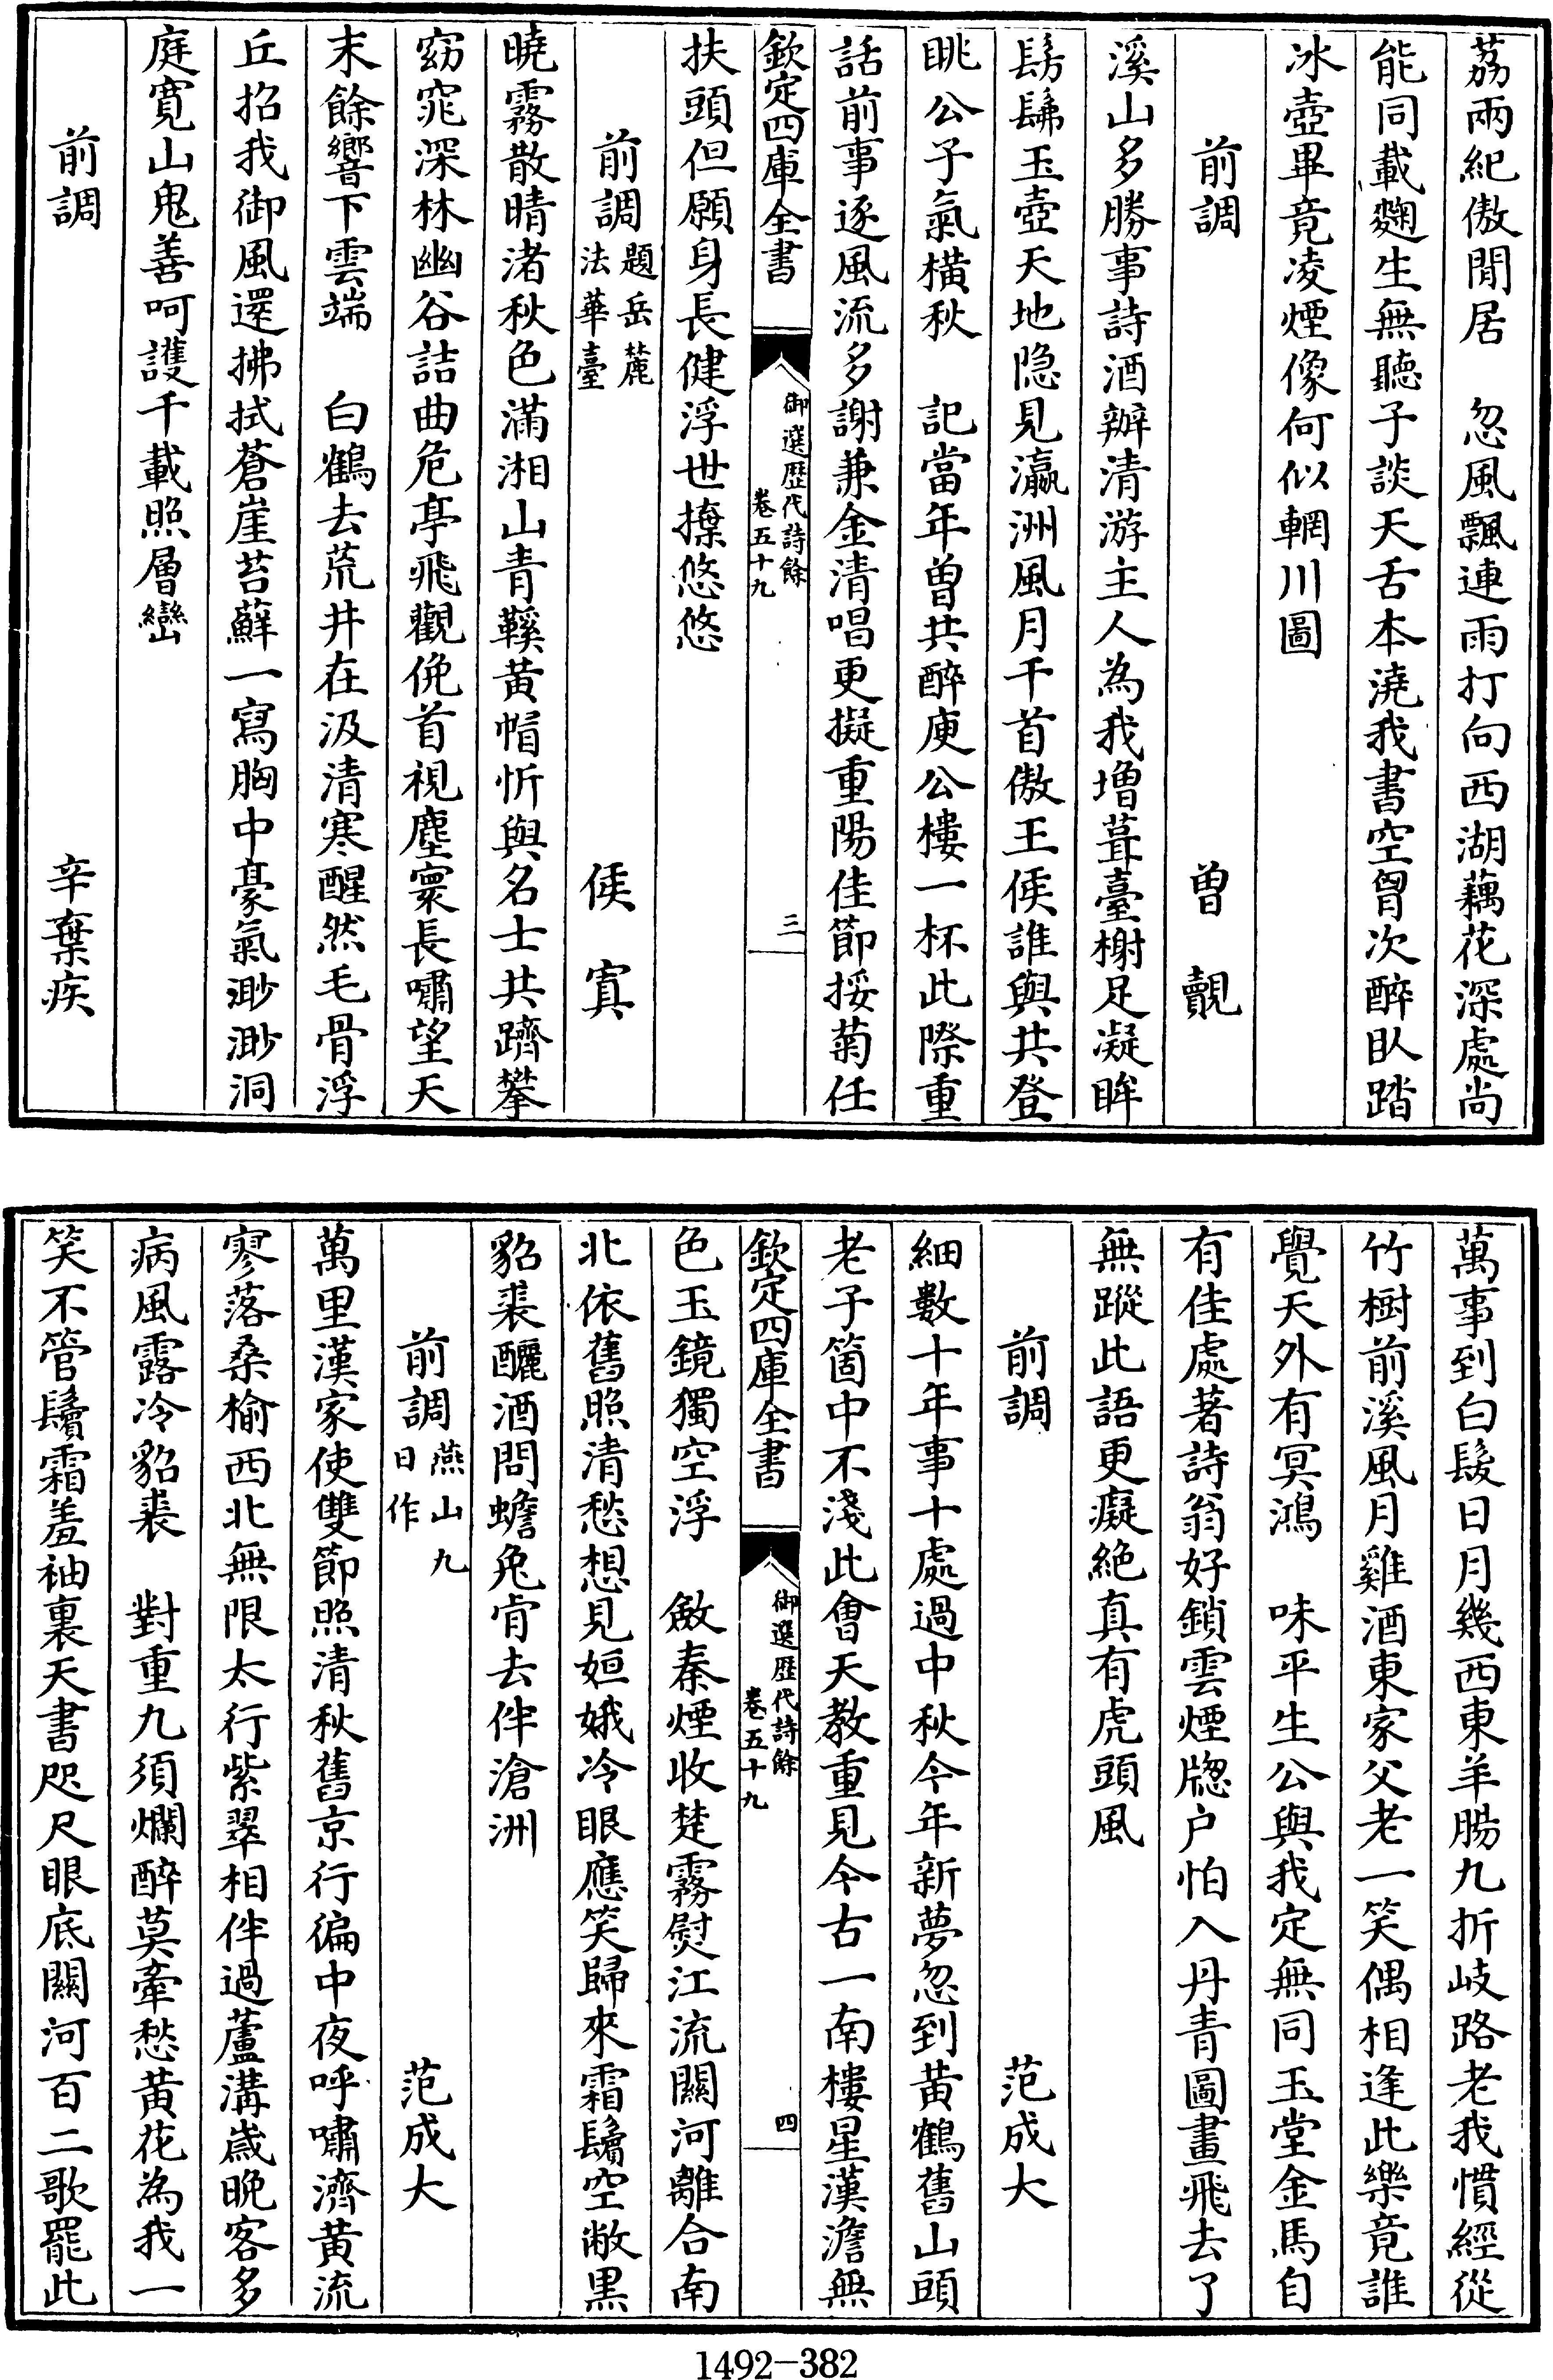 荔兩紀傲閒居　忽風飄連雨打向西湖藕花深處尚
能同載麴生無聽子談天舌本澆我書空胷次醉臥踏
冰壺畢竟凌煙像何似輞川圖
前調　曾覿
溪山多勝事詩酒辦清游主人為我增葺臺榭足凝眸
髣髴玉壺天地隐見瀛洲風月千首傲王侯誰與共登
眺公子氣横秋　記當年曾共醉庾公樓一杯此際重
話前事逐風流多謝兼金清唱更擬重陽佳節挼菊任
欽定四庫全書
御選歷代詩餘
卷五十九
三
扶頭但願身長健浮世㨿悠悠
前調題岳麓法華臺　侯寘
曉霧散晴渚秋色滿湘山青鞵黄帽忻與名士共躋攀
窈窕深林幽谷詰曲危亭飛觀俛首視塵寰長嘯望天
末餘響下雲端　白鶴去荒井在汲清寒醒然毛骨浮
丘招我御風還拂拭蒼崖苔蘚一寫胸中豪氣渺渺洞
庭寛山鬼善呵護千載照層巒
前調　辛棄疾
萬事到白髮日月幾西東羊腸九折岐路老我慣經從
竹樹前溪風月雞酒東家父老一笑偶相逢此樂竟誰
覺天外有冥鴻　味平生公與我定無同玉堂金馬自
有佳處著詩翁好鎖雲煙牕户怕入丹青圖畫飛去了
無蹤此語更癡絶真有虎頭風
前調　范成大
細數十年事十處過中秋今年新夢忽到黄鶴舊山頭
老子箇中不淺此會天教重見今古一南樓星漢澹無
欽定四庫全書
御選歷代詩餘
卷五十九
四
色玉鏡獨空浮　斂秦煙收楚霧熨江流關河離合南
北依舊照清愁想見姮娥冷眼應笑歸來霜鬢空敝黒
貂裘釃酒問蟾兔肯去伴滄洲
前調燕山九日作　范成大
萬里漢家使雙節照清秋舊京行徧中夜呼嘯濟黄流
寥落桑榆西北無限太行紫翠相伴過蘆溝歳晩客多
病風露冷貂裘　對重九須爛醉莫牽愁黄花為我一
笑不管鬢霜羞袖裏天書咫尺眼底關河百二歌罷此
1492-382